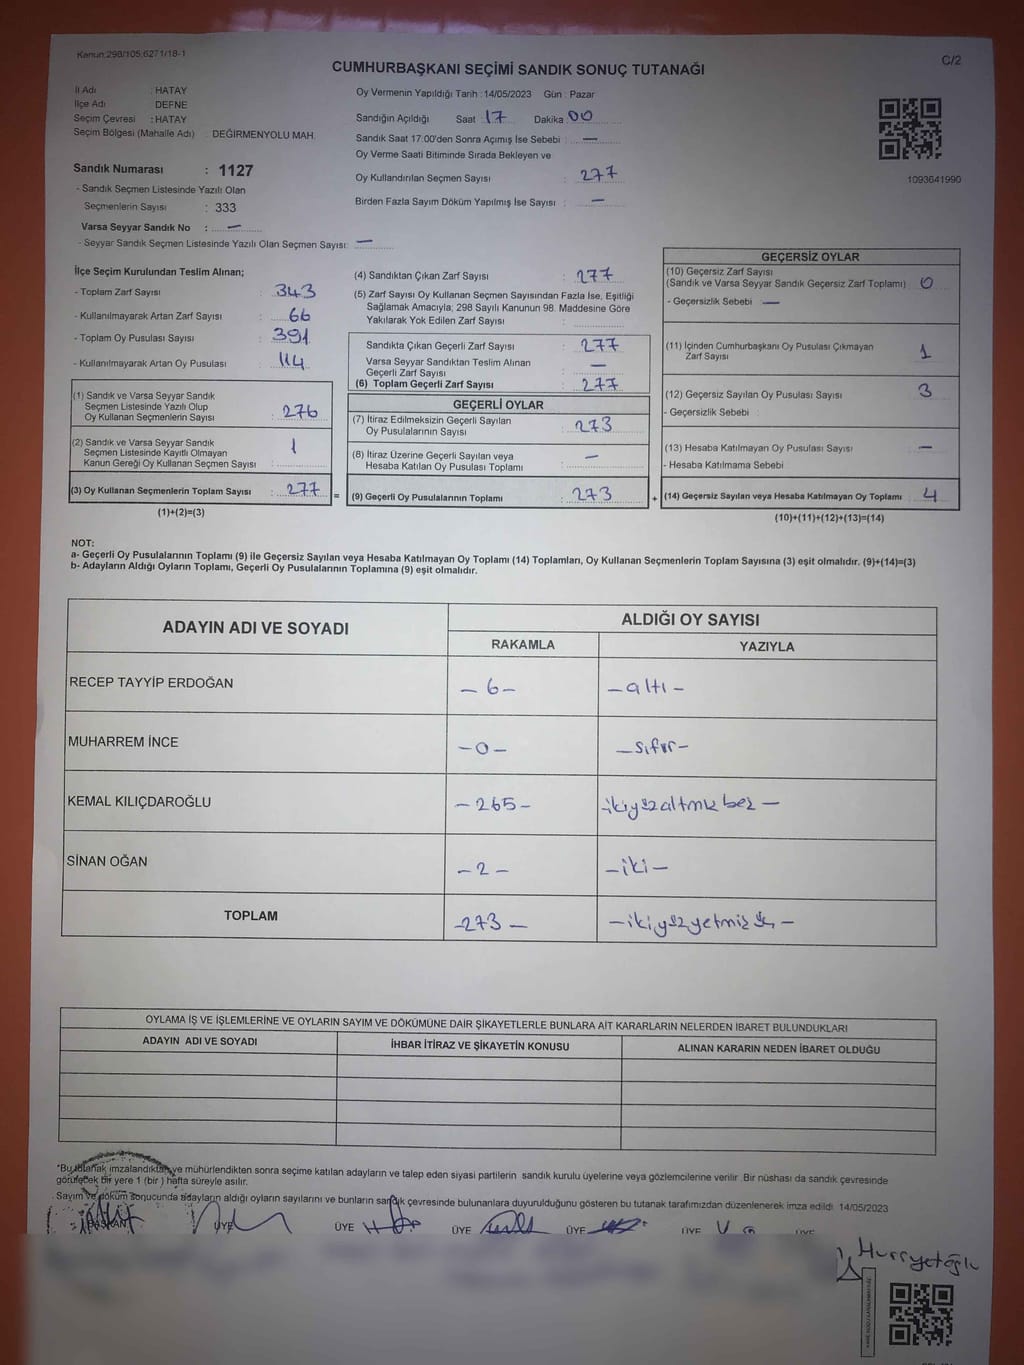 Kanun:298/105,6271/18-1
C/2
CUMHURBAŞKANI SEÇİMİ SANDIK SONUÇ TUTANAĞI
İl Adı : HATAY
İlçe Adı DEFNE
Seçim Çevresi : HATAY
Seçim Bölgesi (Mahalle Adı) : DEĞİRMENYOLU MAH.
Sandık Numarası : 1127
- Sandık Seçmen Listesinde Yazılı Olan
Seçmenlerin Sayısı : 333
Varsa Seyyar Sandık No : —
- Seyyar Sandık Seçmen Listesinde Yazılı Olan Seçmen Sayısı: —
Oy Vermenin Yapıldığı Tarih : 14/05/2023 Gün : Pazar
Sandığın Açıldığı Saat : 17 Dakika : 00
Sandık Saat 17:00'den Sonra Açımış İse Sebebi : —
Oy Verme Saati Bitiminde Sırada Bekleyen ve
Oy Kullandırılan Seçmen Sayısı : 277
Birden Fazla Sayım Döküm Yapılmış İse Sayısı : —
1093641990
İlçe Seçim Kurulundan Teslim Alınan;
- Toplam Zarf Sayısı : 343
- Kullanılmayarak Artan Zarf Sayısı : 66
- Toplam Oy Pusulası Sayısı : 391
- Kullanılmayarak Artan Oy Pusulası : 114
(1) Sandık ve Varsa Seyyar Sandık
Seçmen Listesinde Yazılı Olup
Oy Kullanan Seçmenlerin Sayısı : 276
(2) Sandık ve Varsa Seyyar Sandık
Seçmen Listesinde Kayıtlı Olmayan
Kanun Gereği Oy Kullanan Seçmen Sayısı : 1
(3) Oy Kullanan Seçmenlerin Toplam Sayısı : 277 =
(1)+(2)=(3)
(4) Sandıktan Çıkan Zarf Sayısı : 277
(5) Zarf Sayısı Oy Kullanan Seçmen Sayısından Fazla İse, Eşitliği
Sağlamak Amacıyla; 298 Sayılı Kanunun 98. Maddesine Göre
Yakılarak Yok Edilen Zarf Sayısı :
Sandıkta Çıkan Geçerli Zarf Sayısı : 277
Varsa Seyyar Sandıktan Teslim Alınan
Geçerli Zarf Sayısı : —
(6) Toplam Geçerli Zarf Sayısı : 277
GEÇERLİ OYLAR
(7) İtiraz Edilmeksizin Geçerli Sayılan
Oy Pusulalarının Sayısı : 273
(8) İtiraz Üzerine Geçerli Sayılan veya
Hesaba Katılan Oy Pusulası Toplamı : —
(9) Geçerli Oy Pusulalarının Toplamı : 273 +
GEÇERSİZ OYLAR
(10) Geçersiz Zarf Sayısı
(Sandık ve Varsa Seyyar Sandık Geçersiz Zarf Toplamı) : 0
- Geçersizlik Sebebi : —
(11) İçinden Cumhurbaşkanı Oy Pusulası Çıkmayan
Zarf Sayısı : 1
(12) Geçersiz Sayılan Oy Pusulası Sayısı : 3
- Geçersizlik Sebebi :
(13) Hesaba Katılmayan Oy Pusulası Sayısı : —
- Hesaba Katılmama Sebebi
(14) Geçersiz Sayılan veya Hesaba Katılmayan Oy Toplamı : 4
(10)+(11)+(12)+(13)=(14)
NOT:
a- Geçerli Oy Pusulalarının Toplamı (9) ile Geçersiz Sayılan veya Hesaba Katılmayan Oy Toplamı (14) Toplamları, Oy Kullanan Seçmenlerin Toplam Sayısına (3) eşit olmalıdır. (9)+(14)=(3)
b- Adayların Aldığı Oyların Toplamı, Geçerli Oy Pusulalarının Toplamına (9) eşit olmalıdır.
ADAYIN ADI VE SOYADI
ALDIĞI OY SAYISI
RAKAMLA YAZIYLA
RECEP TAYYİP ERDOĞAN – 6 – – altı –
MUHARREM İNCE – 0 – – sıfır –
KEMAL KILIÇDAROĞLU – 265 – ikiyüzaltmış beş –
SİNAN OĞAN – 2 – – iki –
TOPLAM – 273 – – ikiyüzyetmiş üç –
OYLAMA İŞ VE İŞLEMLERİNE VE OYLARIN SAYIM VE DÖKÜMÜNE DAİR ŞİKAYETLERLE BUNLARA AİT KARARLARIN NELERDEN İBARET BULUNDUKLARI
ADAYIN ADI VE SOYADI İHBAR İTİRAZ VE ŞİKAYETİN KONUSU ALINAN KARARIN NEDEN İBARET OLDUĞU
*Bu tutanak imzalandıktan ve mühürlendikten sonra seçime katılan adayların ve talep eden siyasi partilerin sandık kurulu üyelerine veya gözlemcilerine verilir. Bir nüshası da sandık çevresinde
görülecek bir yere 1 (bir) hafta süreyle asılır.
Sayım ve döküm sonucunda adayların aldığı oyların sayılarını ve bunların sandık çevresinde bulunanlara duyurulduğunu gösteren bu tutanak tarafımızdan düzenlenerek imza edildi. 14/05/2023
BAŞKAN ÜYE ÜYE ÜYE ÜYE ÜYE ÜYE